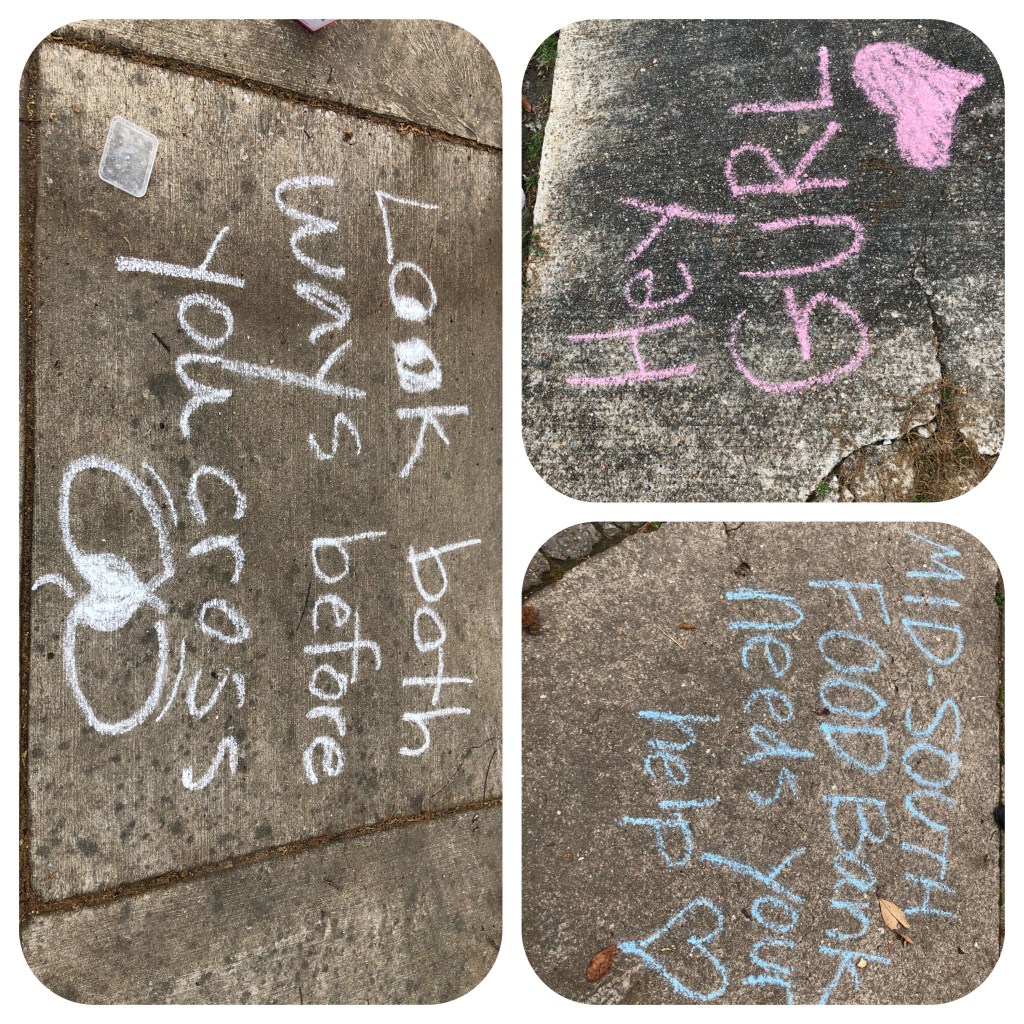 Look both
ways before
you cross
Hey
GURL
MID-SOUTH
FOOD Bank
needs your
help